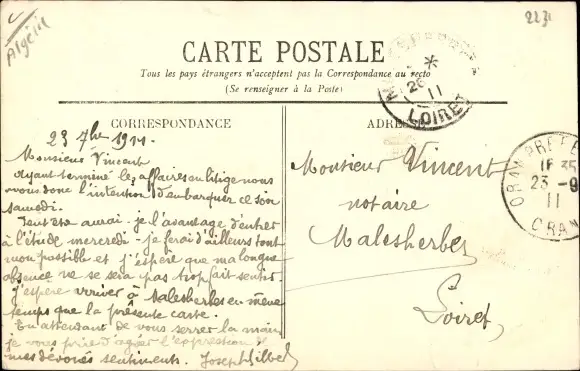 Algérie
2231
CARTE POSTALE
Tous les pays étrangers n'acceptent pas la Correspondance au recto
(Se renseigner à la Poste)
CORRESPONDANCE
23 7bre 1911.
Monsieur Vincent
Ayant terminé les affaires en litige nous
avons donc l'intention d'embarquer ce soir
samedi.
Peut être aurai-je l'avantage d'entrer
à l'étude mercredi - je ferai d'ailleurs tout
mon possible et j'espère que ma longue
absence ne se sera pas trop fait sentir
J'espère arriver à Malesherbes en même
temps que la présente carte.
En attendant de vous serrer la main
je vous prie d'agréer l'expression de
mes dévoués sentiments. Joseph
ADRESSE
Monsieur Vincent
notaire
Malesherbes
Loiret
*
26
11
LOIRET
ORAN PREFE
18 35
23 - 9
11
ORAN